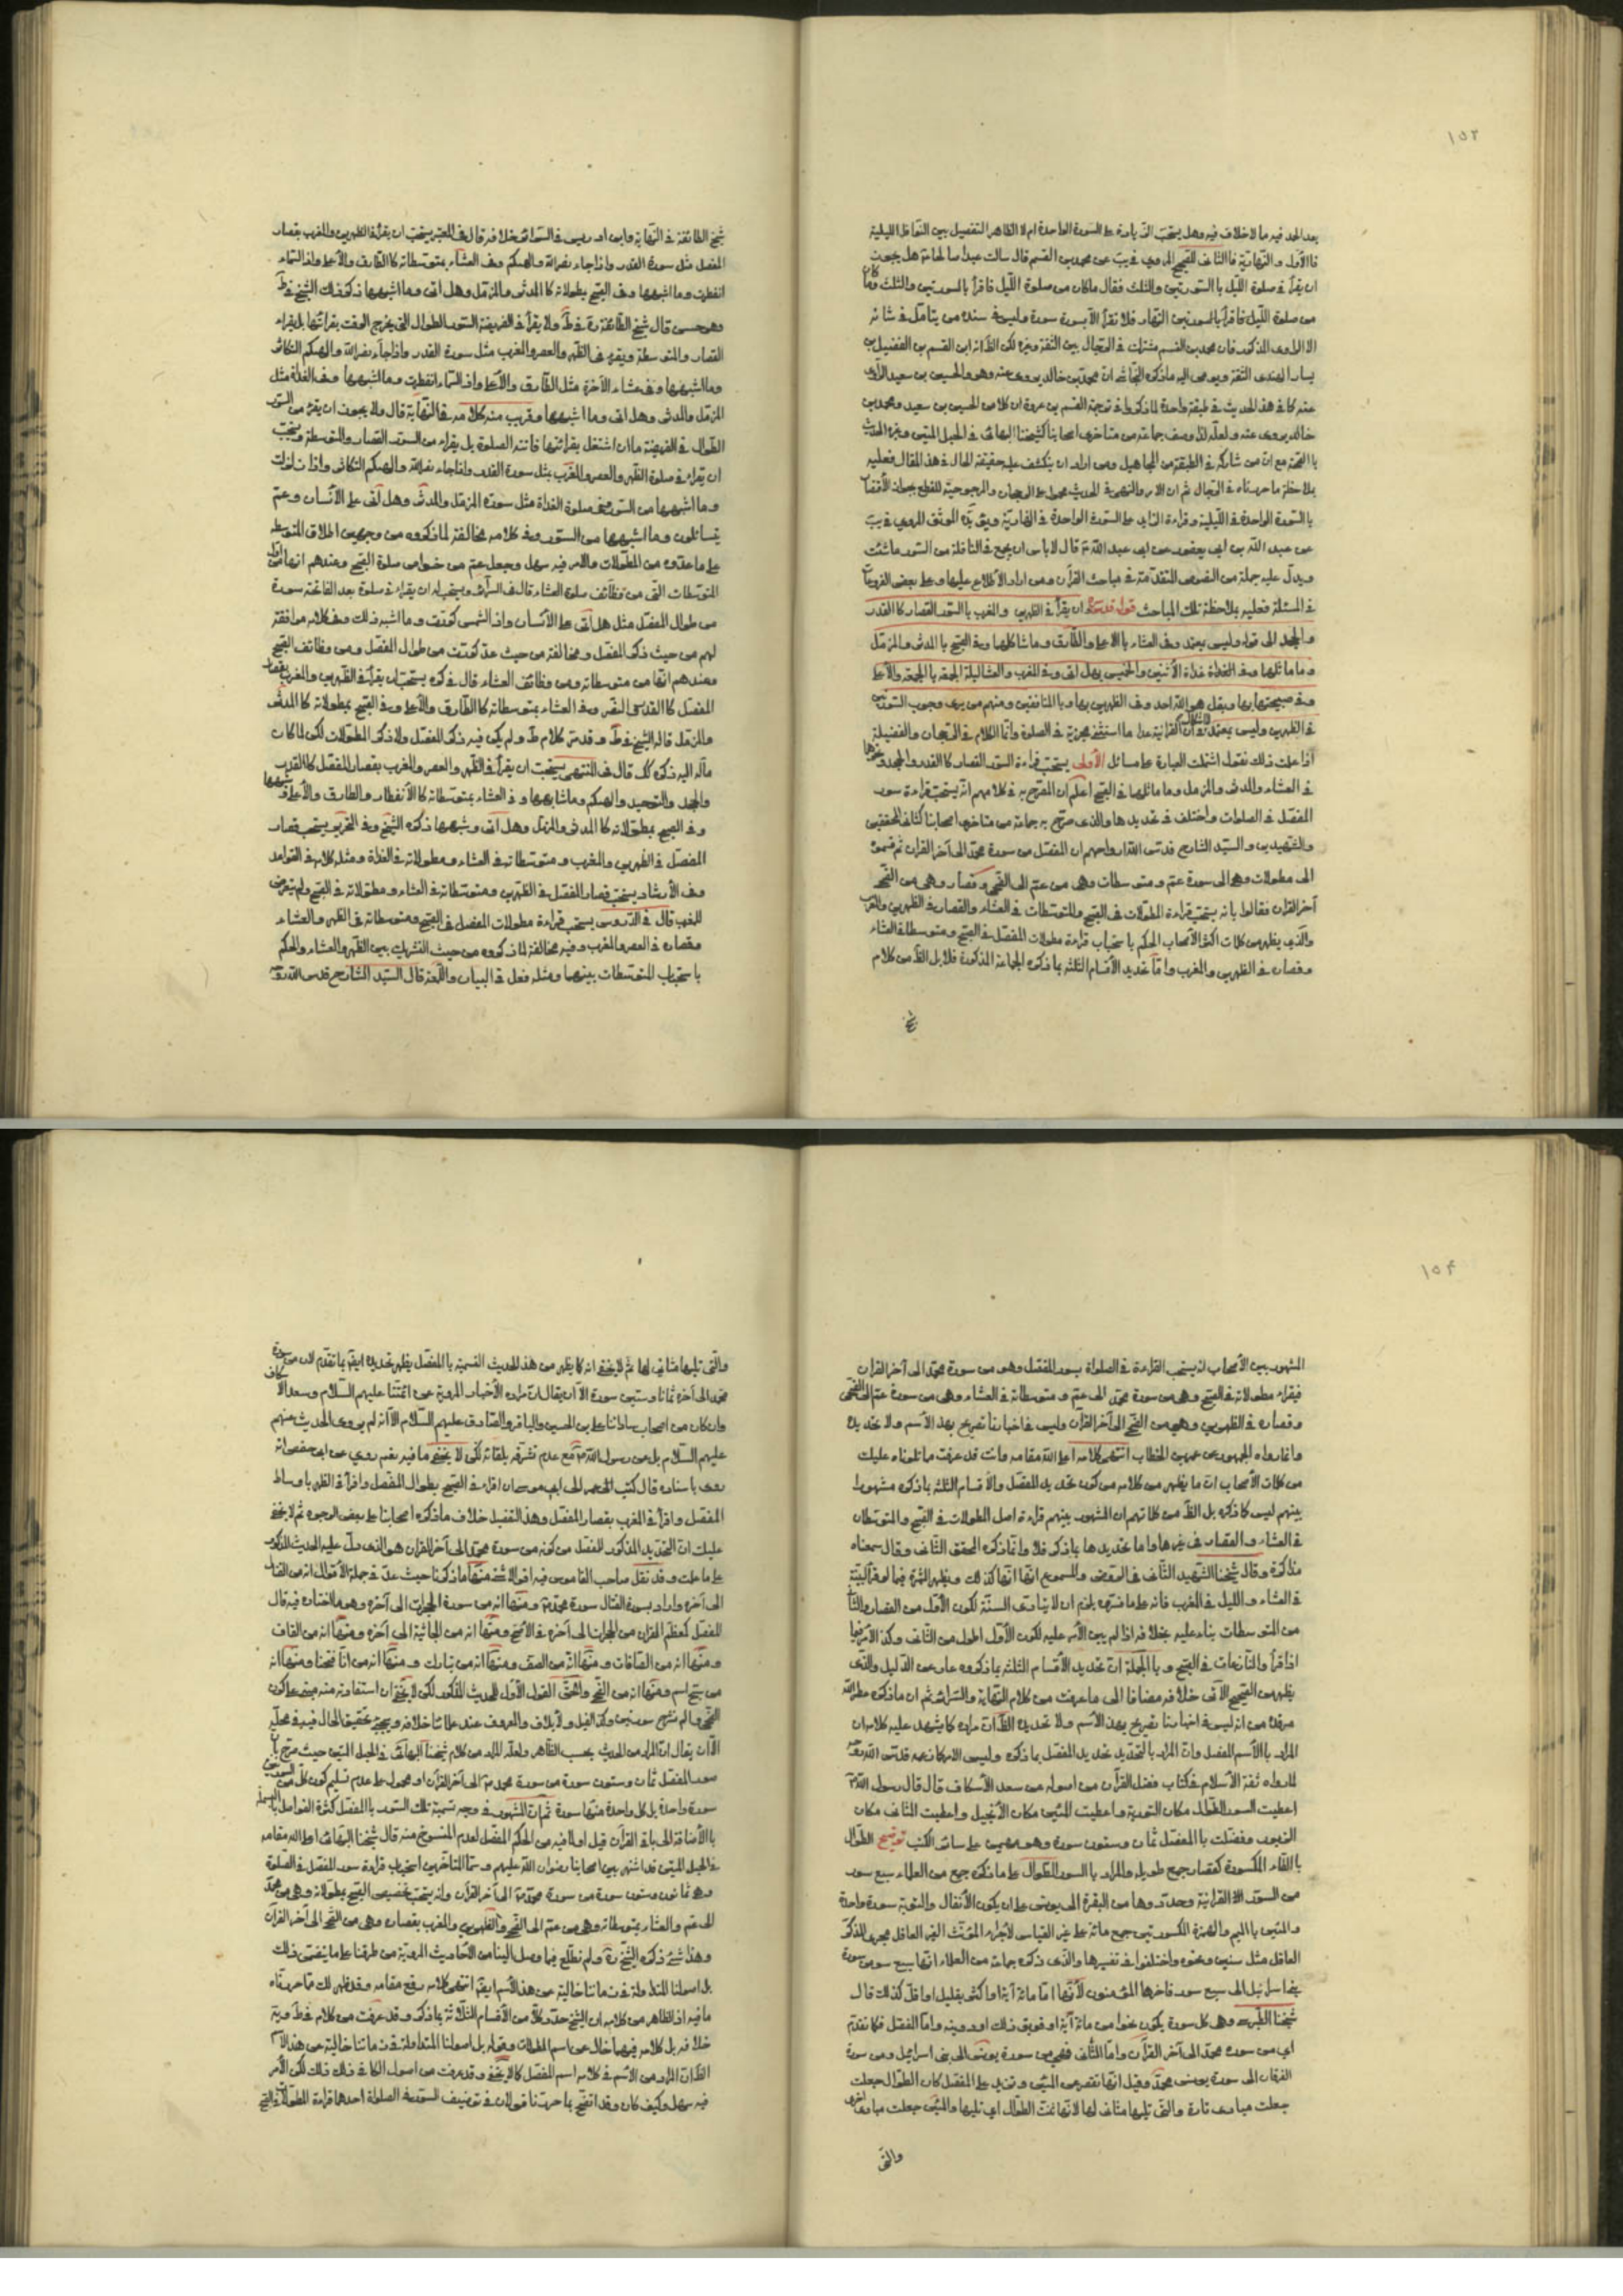 ١٥٣
بعد الحمد فيه ما لا خلاف فيه وهل يستحب الزيادة على السورة الواحدة ام لا الظاهر التفصيل بين النوافل الليلية
فالاول والنهارية فالثاني للصحيح المروي في يب عن محمد بن القسم قال سالت عبدا صالحا هل يجوز
ان يقرأ في صلوة الليل بالسورتين والثلث فقال ما كان من صلوة الليل فاقرأ بالسورتين والثلث وما كان
من صلوة النهار فلا تقرأ الا بسورة سورة وليس في سنده من يتأمل في شانه
الا الراوي المذكور فان محمد بن القسم مشترك في الرجال بين الثقة وغيره لكن الظ انه ابن القسم بن الفضيل بن
يسار النهدي الثقة ويومى اليه ما ذكره النجاشي ان محمد بن خالد يروى عنه وهو والحسين بن سعيد الراوي
عنه كما في هذا الحديث في طبقة واحدة لما ذكروا في ترجمة القسم بن عروة ان كلا من الحسين بن سعيد ومحمد بن
خالد يروى عنه ولعله لذا وصف جماعة من متاخرى اصحابنا كشيخنا البهائى في الحبل المتين وغيره الحديث
بالصحة مع ان من شاركه في الطبقة من المجاهيل ومن اراد ان ينكشف عليه حقيقة الحال في هذا المقال فعليه
بملاحظة ما حررناه في الرجال ثم ان الامر والنهى في الحديث محمول على الرجحان والمرجوحية للقطع بجواز الاقتصار
بالسورة الواحدة في الليلية وقراءة الزايد على السورة الواحدة في النهارية ويؤيده الموثق المروي في يب
عن عبد الله بن ابى يعفور عن ابى عبد الله ع قال لا باس ان يجمع في النافلة من السور ما شئت
ويدل عليه جملة من النصوص المتقدمة في مباحث القرآن ومن اراد الاطلاع عليها وعلى بعض الفروعات
في المسئلة فعليه بملاحظة تلك المباحث قوله قدس سره ان يقرأ في الظهرين والمغرب بالسور القصار كالقدر
والجحد الى قوله وليس يعتمد وفي العشاء بالاعلى والطارق وما شاكلها وفي الصبح بالمدثر والمزمل
وما ماثلها وفي الغداة غداة الاثنين والخميس بهل اتى وفي المغرب والعشا ليلة الجمعة بالجمعة والاعلى
وفي صبيحتها بها وبقل هو الله احد وفي الظهرين بها وبالمنافقين ومنهم من يرى وجوب السورتين
في الظهرين وليس بمعتمد
اذا علمت ذلك نقول اشتملت العبارة على مسائل الاولى يستحب قراءة السور القصار كالقدر والجحد وغيرها
في العشاء والمدثر والمزمل وما ماثلها في الصبح اعلم ان المصرح به في كلامهم انه يستحب قراءة سور
المفصل في الصلوات واختلف في تحديدها والذي صرح به جماعة من متاخرى اصحابنا كثانى المحققين
والشهيدين والسيد الشارح قدس الله ارواحهم ان المفصل من سورة محمد الى آخر القران ثم قسموه
الى مطولات وهو الى سورة عم ومتوسطات وهى من عم الى الضحى وقصار وهى من الضحى
آخر القران فقالوا بانه يستحب قراءة المطولات في الصبح والمتوسطات في العشاء والقصار في الظهرين والمغرب
والذي يظهر من كلمات اكثر الاصحاب الحكم باستحباب قراءة مطولات المفصل في الصبح ومتوسطاته في العشاء
وقصاره في الظهرين والمغرب واما تحديد الاقسام الثلثة بما ذكره الجماعة المذكورة فلا بل الظ من كلام
شيخ الطائفة في النهاية وابن ادريس في السرائر خلافه قال في المعتبر يستحب ان يقرأ في الظهرين والمغرب بقصار
المفصل مثل سورة القدر واذا جاء نصر الله والهيكم وفي العشاء بمتوسطاته كالطارق والاعلى واذا السماء
انفطرت وما اشبهها وفي الصبح بطولاته كالمدثر والمزمل وهل اتى وما اشبهها ذكر ذلك الشيخ في ط
وهو حسن قال شيخ الطائفة ره في ط ولا يقرأ في الفريضة السور الطوال التى يخرج الوقت بقرائتها بل يقراء
القصار والمتوسطة ويقرء في الظهر والعصر والمغرب مثل سورة القدر واذا جاء نصر الله والهيكم التكاثر
وما اشبهها وفي عشاء الآخرة مثل الطارق والاعلى واذا السماء انفطرت وما اشبهها وفي الغداة مثل
المزمل والمدثر وهل اتى وما اشبهها وقريب منه كلامه في النهاية قال ولا يجوز ان يقرء من السور
الطوال في الفريضة ما ان اشتغل بقرائتها فاتته الصلوة بل يقراء من السور القصار والمتوسطة ويستحب
ان يقراء في صلوة الظهر والعصر والمغرب مثل سورة القدر واذا جاء نصر الله والهيكم التكاثر واذا زلزلت
وما اشبهها من السور وفي صلوة الغداة مثل سورة المزمل والمدثر وهل اتى على الانسان وعم
يتسائلون وما اشبهها من السور وفي كلامه مخالفة لما ذكروه من وجهين اطلاق المتوسطة
على ما عدوه من المطولات والامر فيه سهل وجعل عم من خواص صلوة الصبح وعندهم انها من اول
المتوسطات التى من وظائف صلوة العشاء قال في السرائر ويستحب له ان يقراء في صلوة بعد الفاتحة سورة
من طوال المفصل مثل هل اتى على الانسان واذا الشمس كورت وما اشبه ذلك وفي كلامه موافقة
لهم من حيث ذكر المفصل ومخالفة من حيث عد كورت من طوال المفصل ومن وظائف الصبح
وعندهم انها من متوسطاته ومن وظائف العشاء قال في كره يستحب ان يقرأ في الظهرين والمغرب بقصار
المفصل كالقدر والنصر وفي العشاء بمتوسطاته كالطارق والاعلى وفي الصبح بمطولاته كالمدثر
والمزمل قاله الشيخ في ط وقد مر كلام ط ولم يكن فيه ذكر المفصل ولا ذكر المطولات لكن لما كان
مآله اليه ذكره كك قال في المنتهى يستحب ان يقرأ في الظهر والعصر والمغرب بقصار المفصل كالقدر
والجحد والتوحيد والهيكم وما شابهها وفي العشاء بمتوسطاته كالانفطار والطارق والاعلى وشبهها
وفي الصبح بمطولاته كالمدثر والمزمل وهل اتى وشبهها ذكره الشيخ وفي التحرير يستحب قصار
المفصل في الظهرين والمغرب ومتوسطاته في العشاء ومطولاته في الغداة ومثله كلامه في القواعد
وفي الارشاد يستحب قصار المفصل في الظهرين ومتوسطاته في العشاء ومطولاته في الصبح ولم يتعرض
للمغرب قال في الدروس يستحب قراءة مطولات المفصل في الصبح ومتوسطاته في الظهر والعشاء
وقصاره في العصر والمغرب وفيه مخالفة لما ذكروه من حيث التشريك بين الظهر والعشاء والحكم
باستحباب المتوسطات بينهما ومثله فعل في البيان واللمعة قال السيد الشارح قدس الله روحه
١٥٤
المشهور بين الاصحاب انه يستحب القراءة في الصلوات بسور المفصل وهو من سورة محمد الى آخر القران
فيقراء مطولاته في الصبح وهى من سورة محمد الى عم ومتوسطاته في العشاء وهى من سورة عم الى الضحى
وقصاره في الظهرين وهى من الضحى الى آخر القرآن وليس في اخبارنا تصريح بهذا الاسم ولا تحديده
وانما رواه الجمهور عن عمر بن الخطاب انتهى كلامه اعلى الله مقامه وانت قد عرفت ما تلوناه عليك
من كلمات الاصحاب ان ما يظهر من كلامه من كون تحديد المفصل والاقسام الثلثة بما ذكره مشهورا
بينهم ليس كما ذكره بل الظ من كلماتهم ان المشهور بينهم قراءة اصل المطولات في الصبح والمتوسطات
في العشاء والقصار في غيرها واما تحديدها بما ذكر فلا وانما ذكره المحقق الثانى وقال سمعناه
مذاكرة وقال شيخنا الشهيد الثانى في الروض والمسموع انها كذلك ويظهر الثمرة فيما لو قرأ البينة
في العشاء والليل في المغرب فانه على ما فسره يلزم ان لا يتادى السنة لكون الاول من القصار والثانى
من المتوسطات بناء عليه بخلافه اذا لم يبن الامر عليه لكون الاول اطول من الثانى وكذا الامر فيما
اذا قرأ والنازعات في الصبح وبالجملة ان تحديد الاقسام الثلثة بما ذكروه عار عن الدليل والذى
يظهر من الصحيح الآتى خلافه مضافا الى ما عرفت من كلام النهاية والسرائر ثم ان ما ذكره عطر الله
مرقده من انه ليس في اخبارنا تصريح بهذا الاسم ولا تحديده الظ ان مراده كما يشهد عليه كلامه ان
المراد بالاسم المفصل وان المراد بالتحديد تحديد المفصل بما ذكره وليس الامر كما زعمه قدس الله روحه
لما رواه ثقة الاسلام في كتاب فضل القرآن من اصوله عن سعد الاسكاف قال قال رسول الله ص
اعطيت السور الطوال مكان التورية واعطيت المئين مكان الانجيل واعطيت المثانى مكان
الزبور وفضلت بالمفصل ثمان وستون سورة وهو مهيمن على سائر الكتب توضيح الطوال
بالطاء المكسورة كقصار جمع طويلة والمراد بالسور الطوال على ما ذكره جمع من العلماء سبع سور
من السور القرانية وحددوها من البقرة الى يونس على ان يكون الانفال والتوبة سورة واحدة
والمئين بالميم والهمزة المكسورتين جمع مائة على غير القياس لاجراء المؤنث الغير العاقل مجرى المذكر
العاقل مثل سنين ونحوه واختلفوا في تفسيرها والذى ذكره جماعة من العلماء انها سبع سور من سورة
بنى اسرائيل الى سبع سور فاخرها المؤمنون لانها اما مائة آية او اكثر بقليل او اقل كذلك قال
شيخنا الطبرسى وهى كل سورة يكون نحوا من مائة آية او فويق ذلك او دوينه واما المفصل فكما تقدم
اى من سورة محمد الى آخر القرآن واما الثانى فهى من سورة يونس الى بنى اسرائيل ومن سورة
الفرقان الى سورة محمد وقيل انها تقصر من المئين وتزيد على المفصل كان الطوال جعلت
جعلت مبادى تارة والتى تليها مثانى لها لانها ثنت الطوال اى تليها والمئين جعلت مبادى اخرى
والتى
والتى تليها مثانى لها ثم لا يخفى انه كما يظهر من هذا الحديث التسمية بالمفصل يظهر تحديده ايضا بما تقدم لان من سورة
محمد الى آخره ثمانا وستين سورة الا ان يقال ان مراده الاخبار المروية عن ائمتنا عليهم السلام وسعد الاسكاف
وان كان من اصحاب ساداتنا على بن الحسين والباقر والصادق عليهم السلام الا انه لم يروى الحديث عنهم
عليهم السلام بل عن رسول الله ص مع عدم تشرفه بلقائه لكن لا يخفى ما فيه نعم روى عن ابى حفص انه
روى باسناده قال كتب عمر الى ابى موسى ان اقراء في الصبح بطوال المفصل واقرأ في الظهر باوساط
المفصل واقرأ في المغرب بقصار المفصل وهذا التفصيل خلاف ما ذكره اصحابنا على بعض الوجوه ثم لا يخفى
عليك ان التحديد المذكور للمفصل من كونه من سورة محمد الى آخر القران هو الذى دل عليه الحديث المذكور
على ما علمت وقد نقل صاحب القاموس فيه اقوالا شتى منها ما ذكرنا حيث عد في جملة الاقوال انه من القتال
الى آخره واراد بسورة القتال سورة محمد ص ومنها انه من سورة الحجرات الى آخره وهو ما اختاره فيه قال
المفصل كمعظم القران من الحجرات الى آخره في الاصح ومنها انه من الجاثية الى آخره ومنها انه من القاف
ومنها انه من الصافات ومنها انه من الصف ومنها انه من تبارك ومنها انه من انا فتحنا ومنها انه
من سبح اسم ومنها انه من الضحى والحق القول الاول للحديث المذكور لكن لا يخفى ان استفادته منه مبنى على كون
الضحى والم نشرح سورتين وكذا الفيل ولايلاف والمعروف عند علمائنا خلافه ويجئ تحقيق الحال فيه في محله
الا ان يقال ان المراد من الحديث بحسب الظاهر ولعله المراد من كلام شيخنا البهائى في الحبل المتين حيث صرح بان
سور المفصل ثمان وستون سورة من سورة محمد ص الى آخر القران او محمول على عدم تسليم كون كل من السورتين
سورة واحدة بل كل واحدة منها سورة ثم ان المشهور في وجه تسمية تلك السور بالمفصل كثرة الفواصل بالبسملة
بالاضافة الى باقى القرآن قيل او لما فيه من الحكم المفصل لعدم المنسوخ منه قال شيخنا البهائى اعلى الله مقامه
في الحبل المتين قد اشتهر بين اصحابنا رضوان الله عليهم وسيما المتاخرين استحباب قراءة سور المفصل في الصلوة
وهى ثمان وستون سورة من سورة محمد ص الى آخر القرآن وانه يستحب تخصيص الصبح بمطولاته وهى من محمد
الى عم والعشاء بمتوسطاته وهى من عم الى الضحى والظهرين والمغرب بقصاره وهى من الضحى الى آخر القرآن
وهذا شئ ذكره الشيخ ره ولم نطلع فيما وصل الينا من الاحاديث المروية من طرقنا على ما يتضمن ذلك
بل اصولنا المتداولة في زماننا خالية عن هذا الاسم ايضا انتهى كلامه رفع مقامه وقد ظهر لك مما حررناه
ما فيه اذ الظاهر من كلامه ان الشيخ حدد كلا من الاقسام الثلاثة بما ذكر وقد عرفت من كلامه في ط ويه
خلافه بل كلامه فيهما خال عن اسم المطولات وقوله بل اصولنا المتداولة في زماننا خالية عن هذا الاسم
الظ ان المراد من الاسم في كلامه اسم المفصل كما لا يخفى وقد عرفت من اصول الكافى ذلك لكن الامر
فيه سهل وكيف كان وقد اتضح بما حررنا قولان في توظيف السور في الصلوة احدهما قراءة المطولات في الصبح